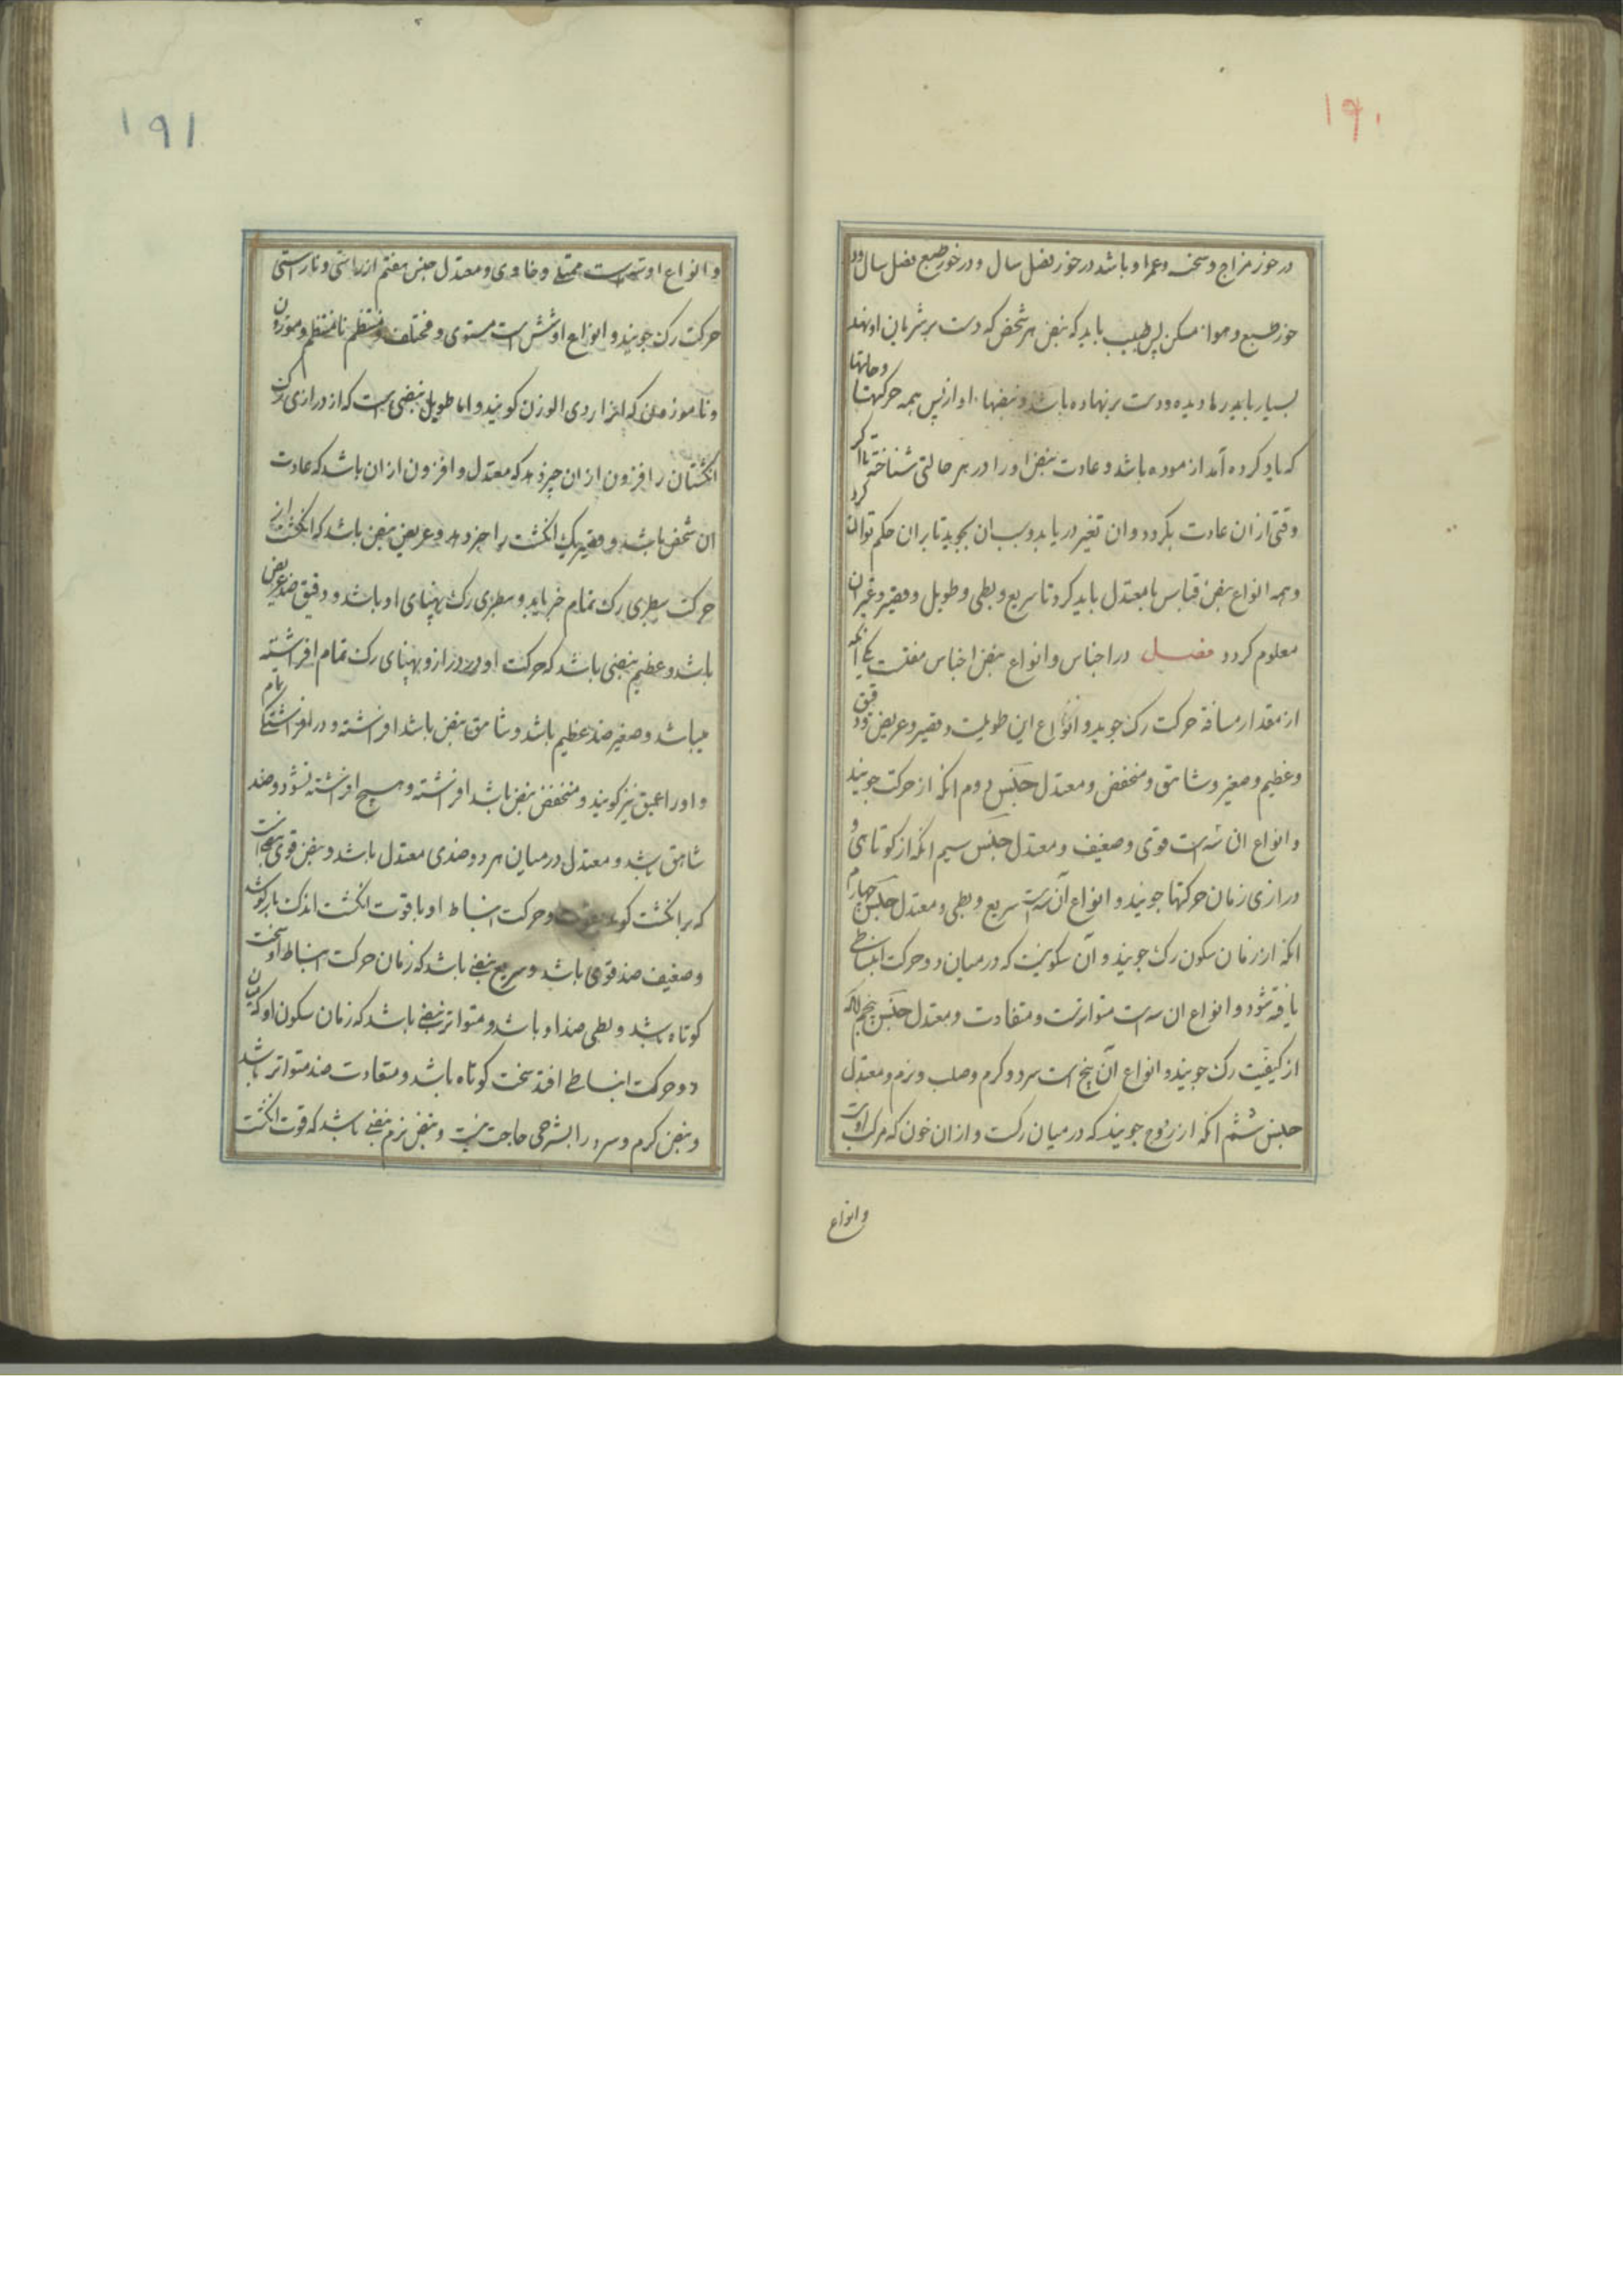 ۱۹۰
در خور مزاج و سخنه و عمر او باشد در خور فصل سال و در خور طبع فصل سال و در
خور طبع و هوا مسکن پس طبیب باید که نبض هر شخص که دست بر شریان او نهد
بسیار بارها دیده و دست بر نهاده باشد و نبضها او از پس همه حرکتها و حالتها
که یاد کرده آمد ازموده باشد و عادت نبض او را در هر حالتی شناخته تا اگر
وقتی از ان عادت بگردد و ان تغیر دریابد و سبب ان بجوید تا بران حکم توان کرد
و همه انواع نبض قیاس با معتدل باید کرد تا سریع و بطی و طویل و قصیر و غیر ان
معلوم کردد فصل در اجناس و انواع نبض اجناس هفتست یکی انکه
از مقدار مسافة حرکت رک جوید و انواع این طویلست و قصیر و عریض و دقیق
و عظیم و صغیر و شاهق و منخفض و معتدل جنس دوم انکه از حرکت جویند
و انواع ان سه است قوی و ضعیف و معتدل جنس سیم انکه از کوتاهی و
درازی زمان حرکتها جویند و انواع آن سه است سریع و بطی و معتدل جنس چهارم
انکه از زمان سکون رک جویند و آن سکونیست که در میان دو حرکت انبساطی
یافته شود و انواع ان سه است متواترست و متفاوت و معتدل جنس پنجم انکه
از کیفیت رک جویند و انواع آن پنج است سرد و کرم و صلب و نرم و معتدل
جنس ششم انکه از روح جویند که در میان رکست و از ان خون که مرکب اوست
و انواع
۱۹۱
و انواع او سه است ممتلی و خاوی و معتدل جنس هفتم از راستی و ناراستی
حرکت رک جویند و انواع او شش است مستوی و مختلف و منتظم نامنتظم و موزون
و ناموزون که انرا ردی الوزن کویند و اما طویل نبضی است که از درازی رک
انکشتان را افزون از ان خبر دهد که معتدل و افزون از ان باشد که عادت
ان شخص باشد و قصیر یک انکشت را خبر دهد و عریض نبض باشد که انکشت از
حرکت سطبری رک تمام خبر یابد و سطبری رک پهنای او باشد و دقیق ضد عریض
باشد و عظیم نبضی باشد که حرکت او در دراز و پهنای رک تمام افراشته
میباشد و صغیر ضد عظیم باشد و شاهق نبض باشد افراشته و در افراشتکی تام
و او را عمیق نیز کویند و منخفض نبض باشد افراشته و هیچ افراشته نشود و ضد
شاهق باشد و معتدل در میان هر دو ضدی معتدل باشد و نبض قوی نبضیست
که بر انکشت کوبد بقوت و حرکت انبساط او با قوت انکشت اندک باز کوشد
و ضعیف ضد قوی باشد و سریع نبضی باشد که زمان حرکت انبساط او سخت
کوتاه باشد و بطی ضد او باشد و متواتر نبضی باشد که زمان سکون او که میان
دو حرکت انبساطی افتد سخت کوتاه باشد و متفاوت ضد متواتر باشد
و نبض کرم و سرد را بشرحی حاجت نیست و نبض نرم نبضی باشد که قوت انکشت